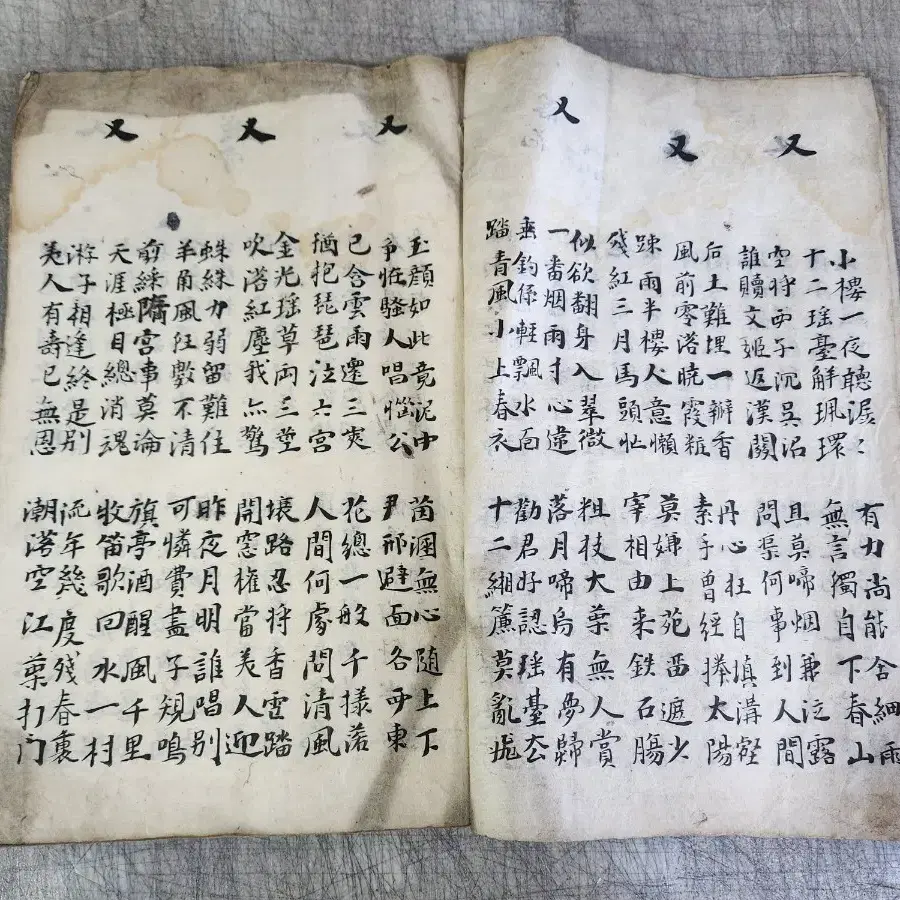 又
小樓一夜聽潺〻
十二瑤臺解珮環
有力尚能含細雨
無言獨自下春山
空將西子沉吳沼
誰贖文姬返漢關
且莫啼烟兼泣露
問渠何事到人間
又
后土難埋一瓣香
風前零落曉霞粧
丹心枉自填溝壑
素手曾經捧太陽
踈雨半樓人意懶
殘紅三月馬頭忙
莫嫌上苑番遮少
宰相由来鉄石腸
又
似欲翻身入翠微
一番烟雨寸心違
粗枝大葉無人賞
落月啼烏有夢歸
垂釣係輕飄水面
踏青風小上春衣
勸君好認瑤臺去
十二緗簾莫亂
又
玉顏如此竟泥中
爭怪騷人唱惱公
茵溷無心随上下
尹邢避面各西東
已含雲雨還三
猶把琵琶泣六宮
花總一般千樣落
人間何處問清風
又
金光瑤草兩三莖
吹落紅塵我亦驚
壞路忍將香雪踏
開窓權當美人迎
蛛絲力弱留難住
羊角風狂數不清
昨夜月明誰唱別
可憐費盡子規鳴
又
剪綵隋宮事莫論
天涯極目總消魂
旗亭酒醒風千里
收笛歌回水一村
游子相逢終是別
美人有壽已無恩
流年幾度殘春裏
潮落空江葉打門